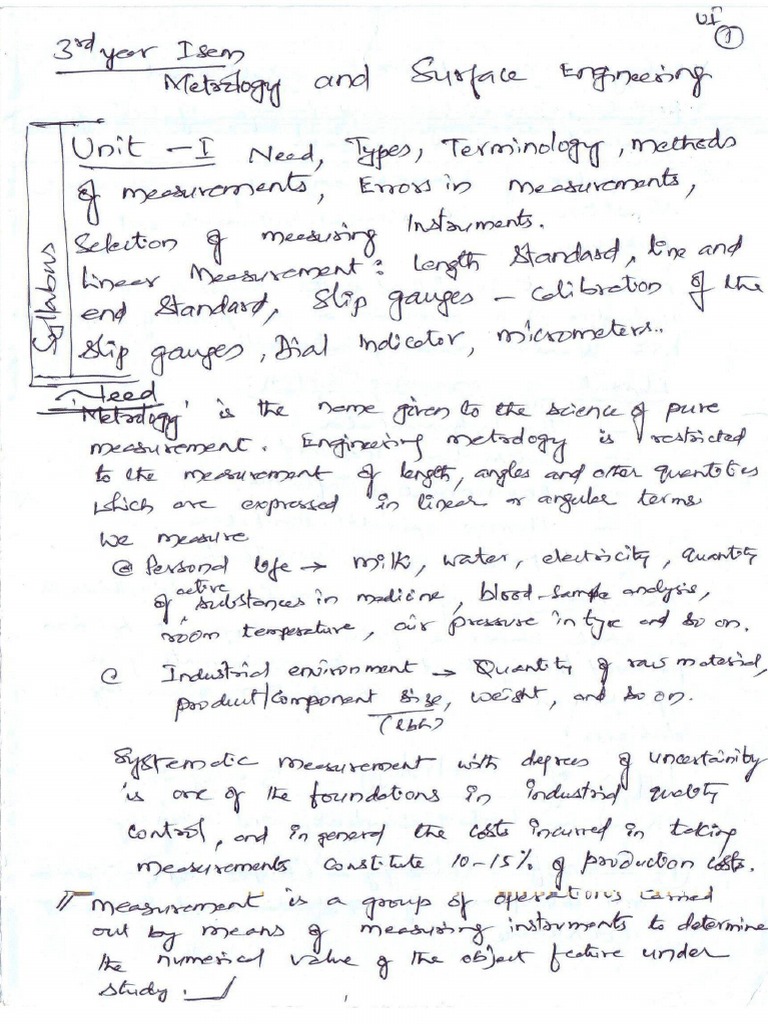 UI
1
3rd year I sem
Metrology and Surface Engineering
Syllabus
Unit - I Need, Types, Terminology, methods
of measurements, Errors in measurements,
Selection of measuring Instruments.
Linear Measurement: Length Standard, line and
end Standard, Slip gauges - Calibration of the
Slip gauges, Dial Indicator, micrometers..
Need
'Metrology' is the name given to the science of pure
measurement. Engineering metrology is restricted
to the measurement of length, angles and other quantities
which are expressed in linear or angular terms
We measure
Personal life → milk, water, electricity, quantity
of active substances in medicine, blood-sample analysis,
room temperature, air pressure in tyre and so on.
Industrial environment → Quantity of raw material,
product/component size, weight, and so on.
(lbh)
Systematic measurement with degrees of uncertainity
is one of the foundations in industrial quality
control, and in general the costs incurred in taking
measurements constitute 10-15% of production costs.
// measurement is a group of operations carried
out by means of measuring instruments to determine
the numerical value of the object feature under
study.